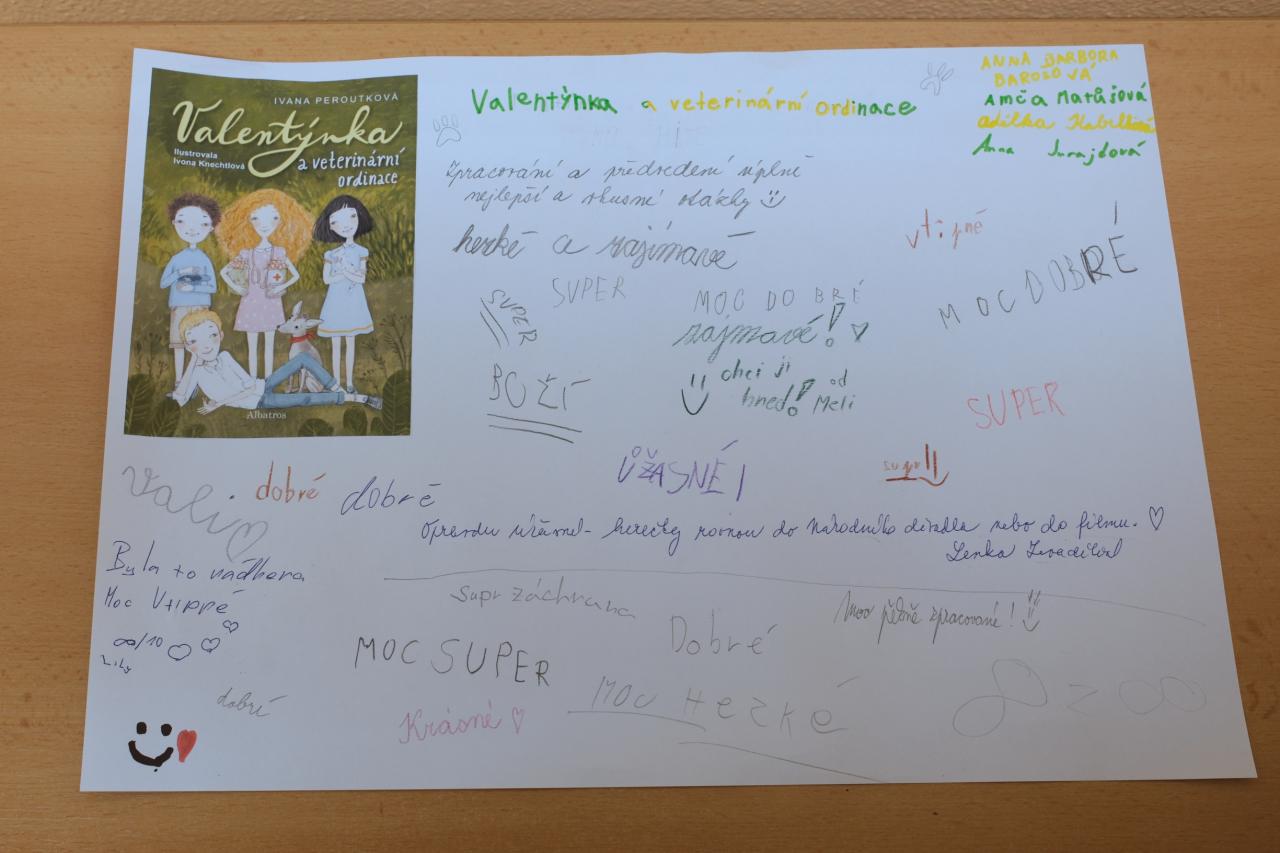 IVANA PEROUTKOVÁ
Valentýnka
Ilustrovala
Ivona Knechtlová
a veterinární
ordinace
Albatros
Valentýnka a veterinární ordinace
ANNA BARBORA
BAROŠOVÁ
Amča Matůšová
Adélka
Anna
Zpracování a předvedení úplně
nejlepší a vkusné otázky
hezké a zajímavé
vtipné
SUPER
SUPER
MOC DOBRÉ
MOC DOBRÉ!
zajmavé!
BOŽÍ
chci ji
hned! od
Meli
SUPER
ÚŽASNÉ!
supr!!
dobré
dobré
Opravdu úžasné - herečky rovnou do Národního divadla nebo do filmu.
Lenka
Byla to nádhera
Moc Vtippé
∞/10
Lily
Supr záchrana
Moc pěkně zpracované!
Dobré
MOC SUPER
Moc HeZKé
dobré
Krásné
8 z ∞